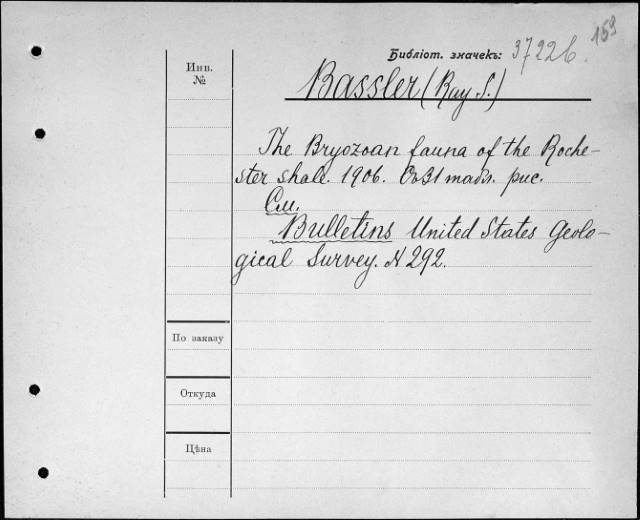 159
Библіот. значекъ: 37226.
Инв.
№
Bassler (Ray S.)
The Bryozoan fauna of the Roche-
ster shale. 1906. Съ 31 табл. рис.
См.
Bulletins United States Geolo-
gical Survey. N 292.
По заказу
Откуда
Цѣна